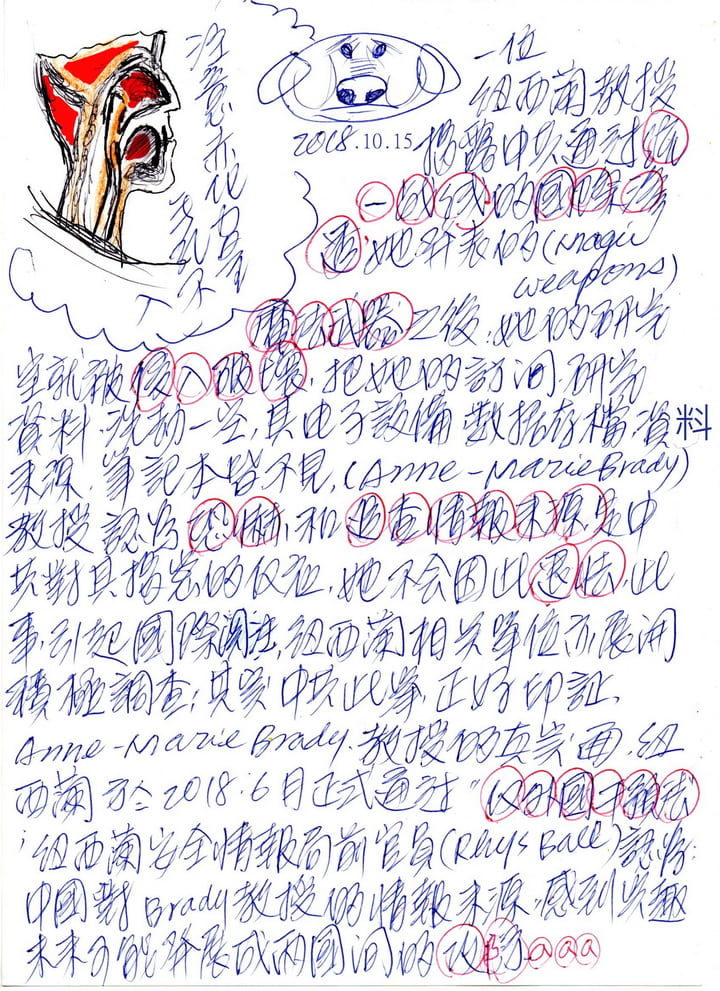 一位
紐西蘭教授
2018.10.15 揭露中共通過統
一战线的國際滲
透,她발表的(Magic
weapons)
魔法武器之後,她的研究
室就被侵入破壞,把她的訪问,研究
資料,洗劫一空,其电子設備,數据存檔,資料
來源,筆記本皆不見,(Anne-Marie Brady)
教授認為恐嚇,和追查情報來源,是中
共對其揭寃的仅征,她不会因此退怯,此
事,引起國際関注,紐西蘭相关單位亦展開
積極調查;其实中共此舉,正好印証,
Anne-Marie Brady,教授的真实面,紐
西蘭於2018.6月正式通过"仅外國干預法
'紐西蘭安全情報局前官員(Rhys Ball)認為:
中國對Brady教授的情報來源,感到兴趣
未來可能발展成两國间的攻防